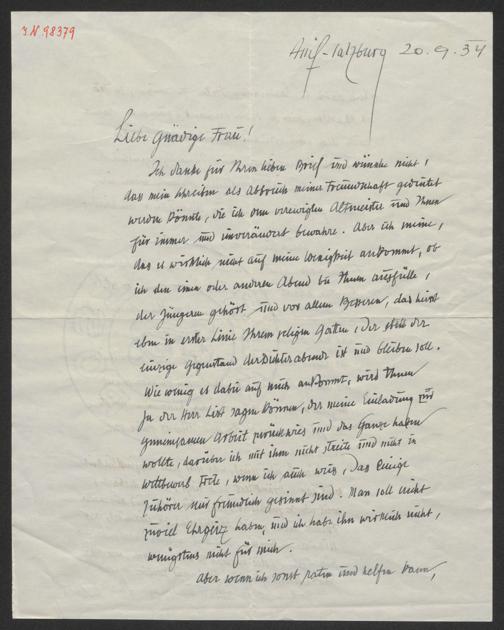 J.N. 98379
Anif-Salzburg 20.9.34
Liebe gnädige Frau!
Ich danke für Ihren lieben Brief und wünsche nicht,
dass mein Schreiben als Abbruch meiner Freundschaft gedeutet
werden könnte, die ich dem verewigten Altmeister und Ihnen
für immer und unverändert bewahre. Aber ich meine,
das es wirklich nicht auf meine Wenigkeit ankommt, ob
ich den einen oder anderen Abend bei Ihnen ausfülle,
der Jüngeren gehört und vor allem Besseren, das heisst
eben in erster Linie Ihrem seligen Gatten, der stets der
einzige Gegenstand der Dichterabende ist und bleiben soll.
Wie wenig es dabei auf mich ankommt, wird Ihnen
ja der Herr List sagen können, der meine Einladung zur
gemeinsamen Arbeit zurückwies und das Ganze haben
wollte, darüber ich mit ihm nicht streite und nicht in
Wettbewerb trete, wenn ich auch weis, das einige
Zuhörer mir freundlich gesinnt sind. Man soll nicht
zuviel Ehrgeiz haben, und ich habe ihn wirklich nicht,
wenigstens nicht für mich.
Aber wenn ich sonst raten und helfen kann,